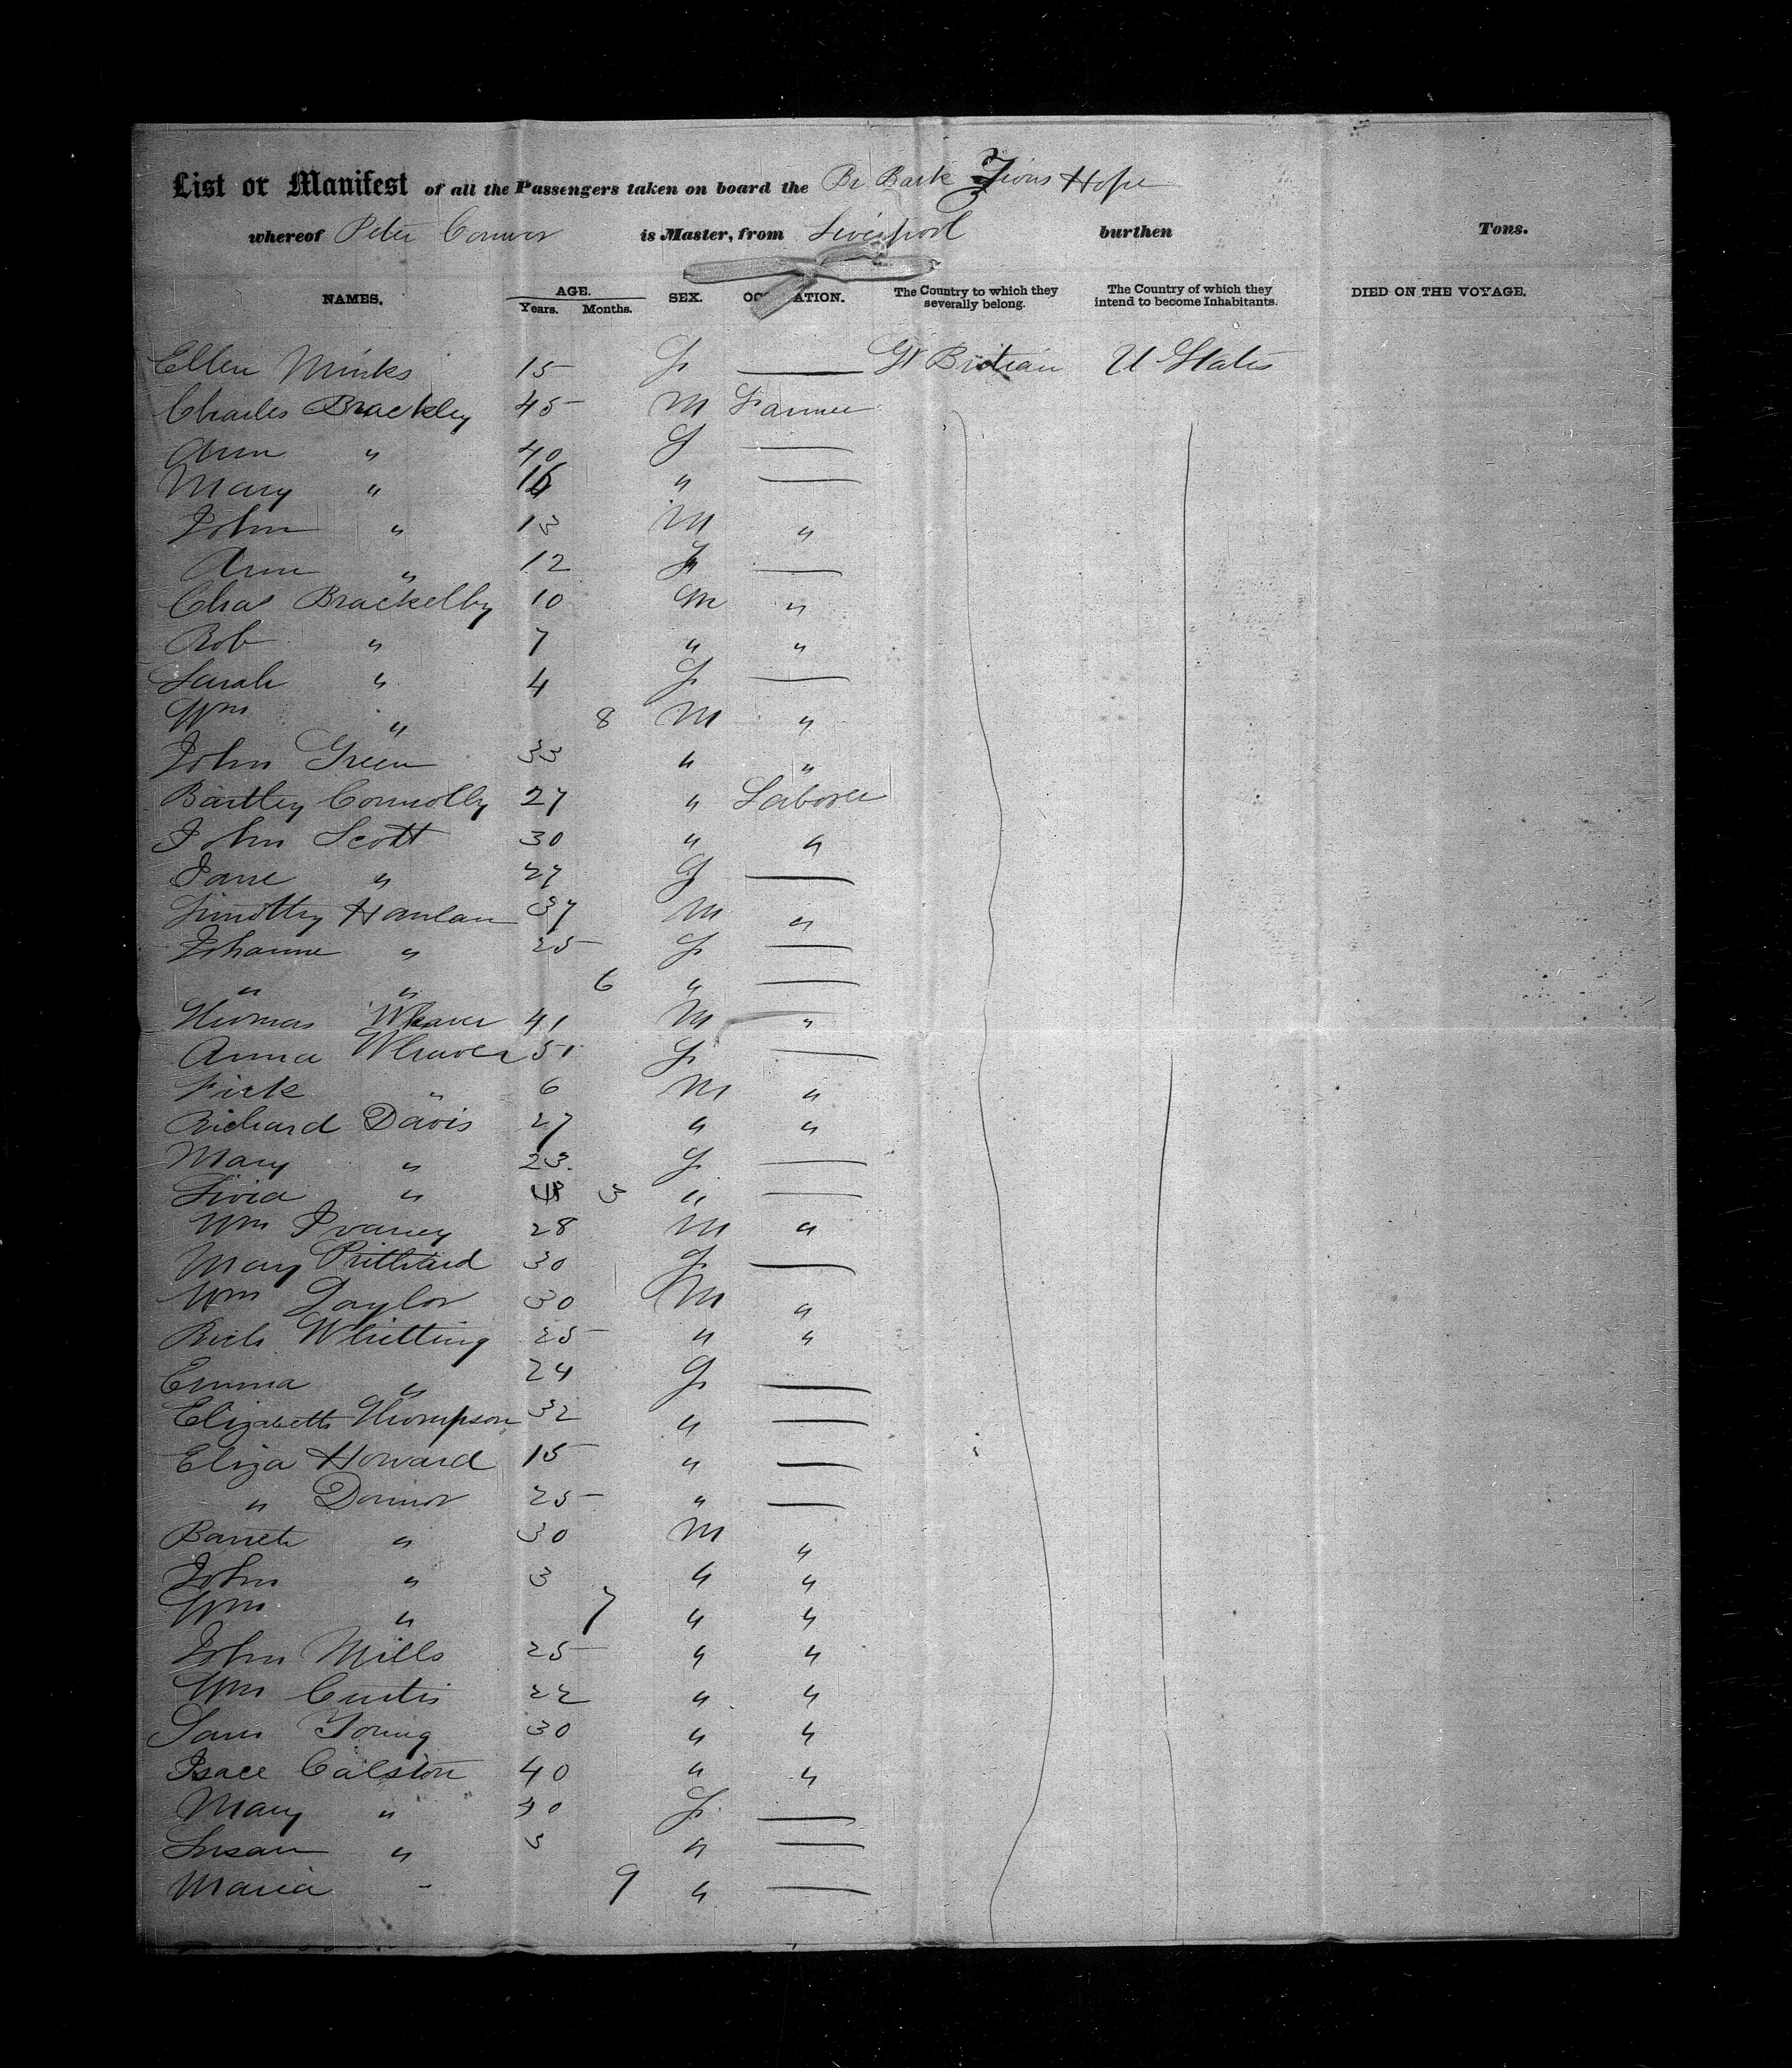 List or Manifest of all the Passengers taken on board the Br Bark Zions Hope
whereof Peter Connor is Master, from Liverpool burthen Tons.
NAMES. AGE. Years. Months. SEX. OCCUPATION. The Country to which they severally belong. The Country of which they intend to become Inhabitants. DIED ON THE VOYAGE.
Ellen Minks 15 F — Gt Britian U States
Charles Brackley 45 M Farmer
Ann " 40 F —
Mary " 16 " —
John " 13 M "
Ann " 12 F —
Chas Brackelby 10 M "
Rob " 7 " "
Sarah " 4 F —
Wm " 8 M "
John Green 33 " "
Bartley Connolly 27 " Laborer
John Scott 30 " "
Jane " 27 F —
Timothy Hanlan 37 M "
Johanne " 25 F —
" " 6 " —
Thomas Weaver 41 M "
Anna Weaver 51 F —
" 6 M "
Richard Davis 27 " "
Mary " 23 F —
" 3 " —
Wm 28 M "
Mary Prithard 30 F —
Wm Taylor 30 M "
Rich Whitting 25 " "
Emma " 24 F —
Elizabeth Thompson 32 " —
Eliza Howard 15 " —
" 25 " —
" 30 M "
John " 3 " "
Wm " 7 " "
John Mills 25 " "
Wm Curtis 22 " "
Sam Young 30 " "
Isace Calston 40 " "
Mary " 40 F —
Susan " 3 " —
Maria - 9 " —